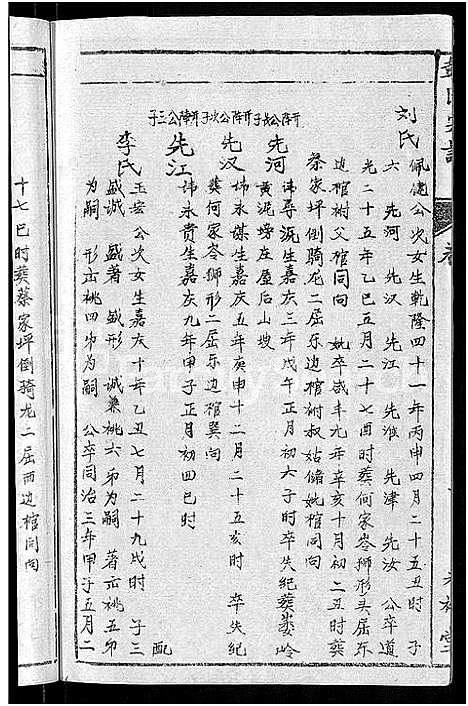 刘氏 佩德公次女生乾隆四十一年丙申四月二十五丑时 子
六 先河 先汉 先江 先淮 先津 先汝 公卒道
光二十五年乙巳五月二十七酉时葬何家岺狮形头屈东
边棺树父棺同向 妣卒咸丰元年辛亥十月初二丑时葬
蔡家坪倒骑龙二屈东边棺树叔姑储妣棺同向
开阵公长子
先河 讳导浣生嘉庆三年戊午正月初六子时卒失纪葬娄岭
黄泥塝庄屋后山坡
开阵公次子
先汉 讳永谋生嘉庆五年庚申十二月二十五亥时 卒失纪
葬何家岺狮形二屈东边棺巽向
开阵公三子
先江 讳永贵生嘉庆九年甲子正月初四巳时 配
李氏 玉宏公次女生嘉庆十年乙丑七月二十九戌时 子三
盛诚 盛著 盛形 诚兼桃六弟为嗣 著亦桃五弟
为嗣 形亦桃四弟为嗣 公卒同治三年甲子五月二
十七巳时葬蔡家坪倒骑龙二屈西边棺同向